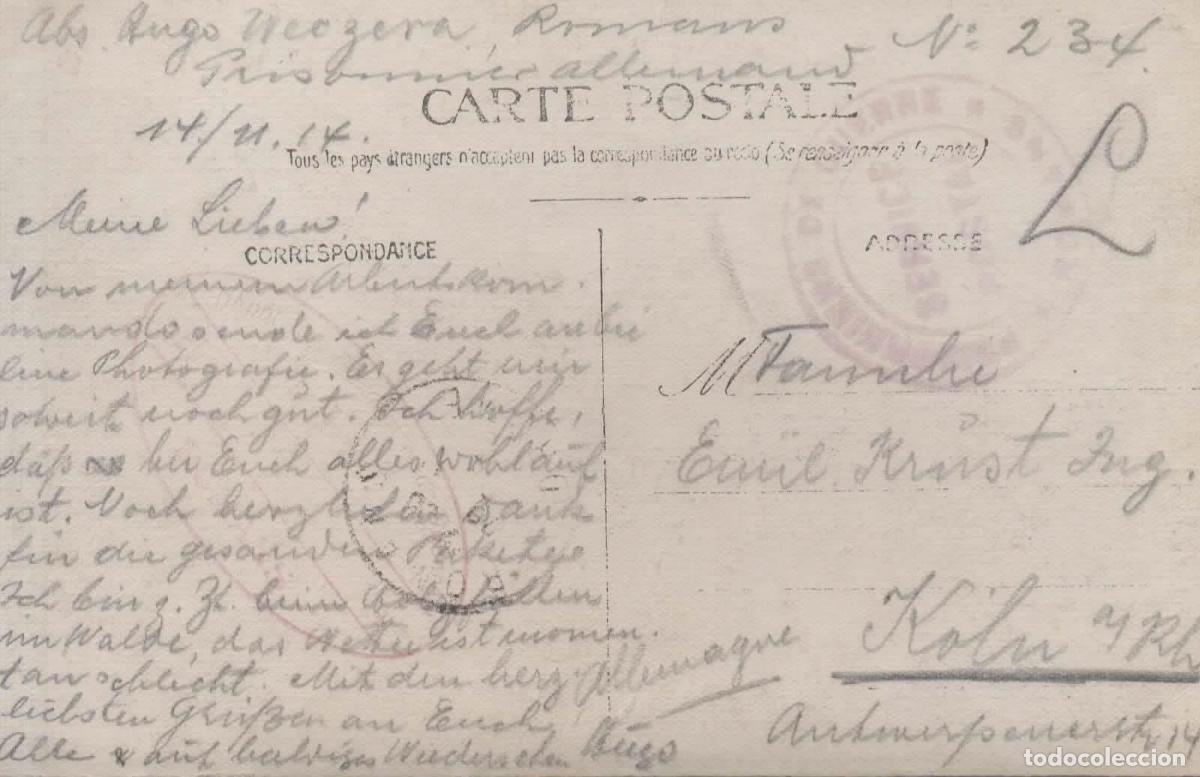 Abs. Hugo Weczera, Romans No: 234.
Prisonnier allemand
CARTE POSTALE
14/11.14.
Tous les pays étrangers n'acceptent pas la correspondance au recto (Se renseigner à la poste)
Meine Lieben!
CORRESPONDANCE
Von meinem Arbeitskom-
mando sende ich Euch anbei
eine Photografie. Es geht mir
soweit noch gut. Ich hoffe,
daß bei Euch alles wohlauf
ist. Noch herzlichen Dank
für die gesanden Pakete
Ich bin z. Zt. beim Holzfällen
im Walde, das Wetter ist momen-
tan schlecht. Mit den herz-
liebsten Grüßen an Euch
Alle & auf baldiges Wiedersehen Hugo
ADRESSE
L
M Familie
Emil Krust Ing.
Köln a/Rh
Allemagne
Antwerpenerstr. 14
DE GUERRE
SERVICE
todocoleccion